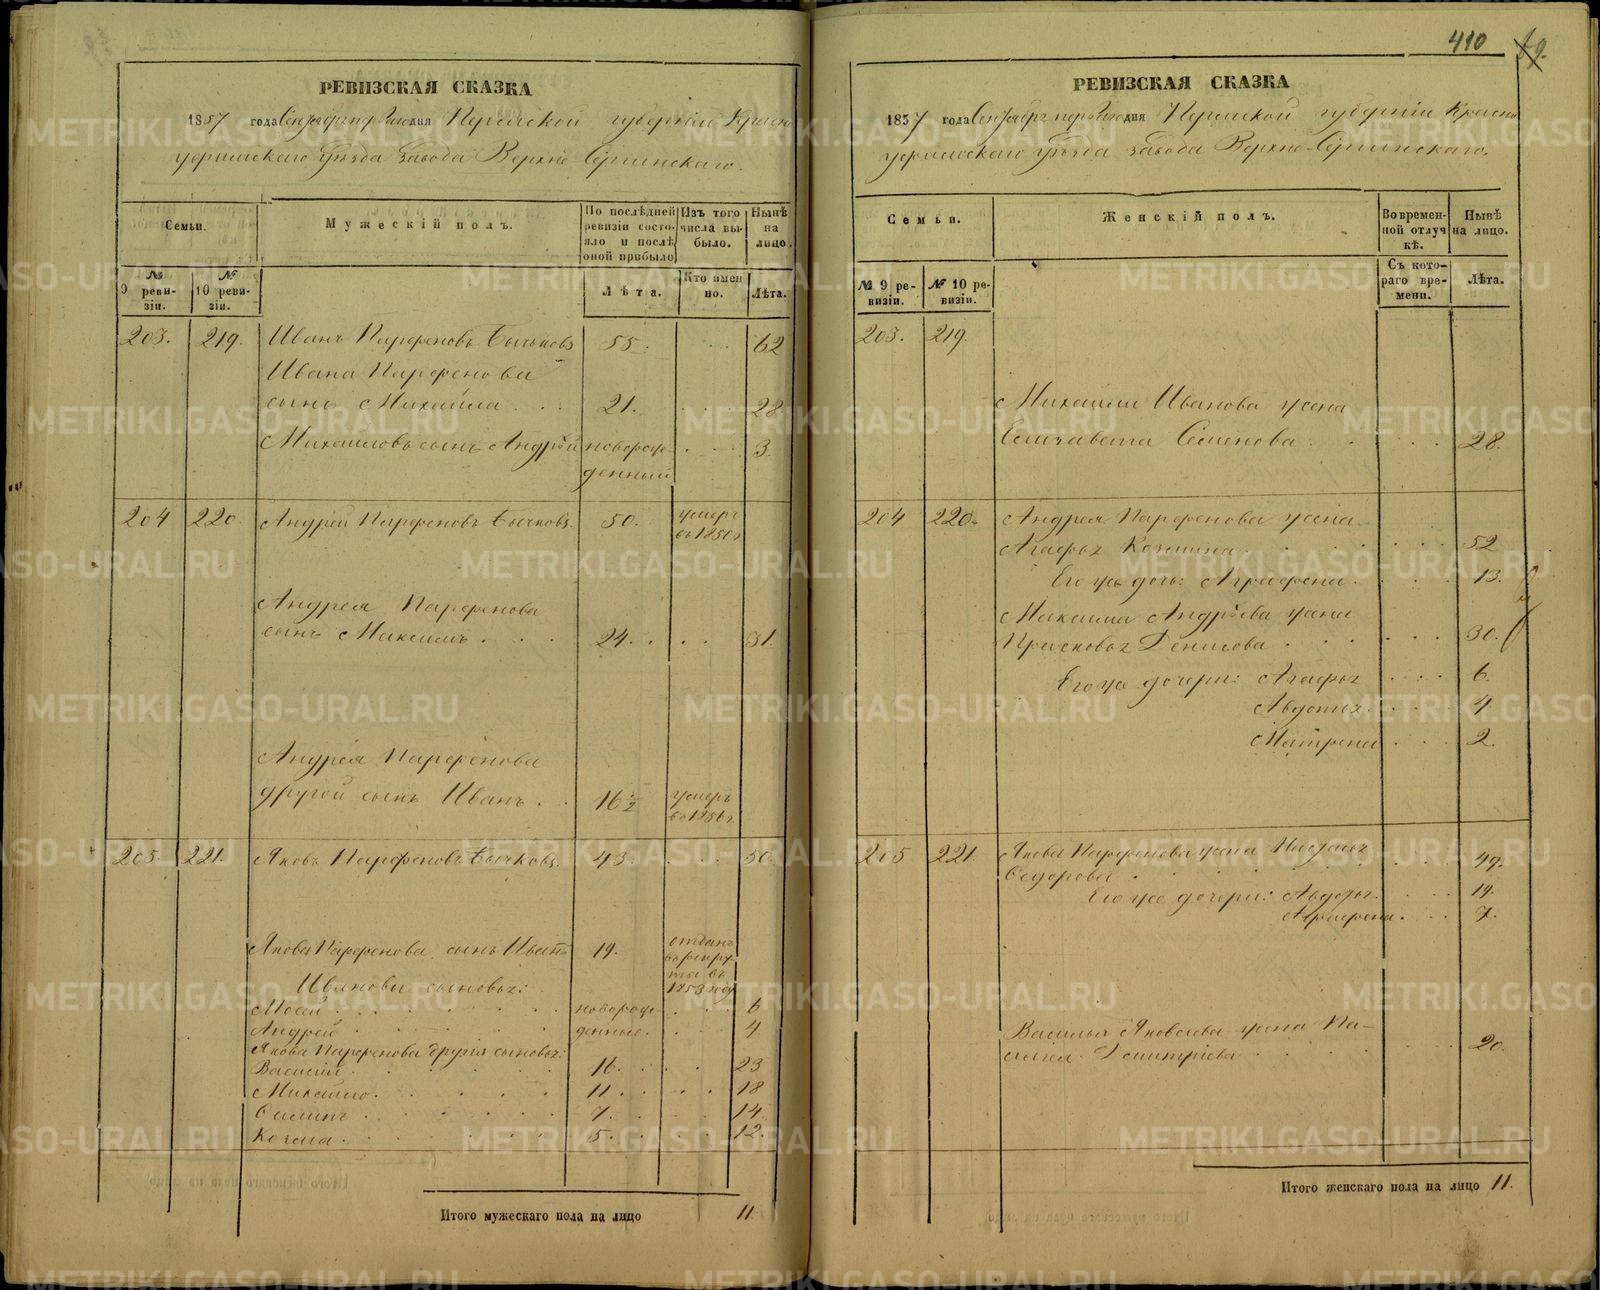 РЕВИЗСКАЯ СКАЗКА
1857 года Сентября перваго дня Пермской губерніи Красно
уфимскаго уѣзда завода Верхне Сергинскаго.
Семьи.
Мужескій полъ.
По послѣдней ревизіи состояло и послѣ оной прибыло
Изъ того числа выбыло.
Нынѣ на лицо.
№ 9 ревизіи.
№ 10 ревизіи.
Лѣта.
Кто именно.
Лѣта.
203. 219. Иванъ Парфеновъ Бычковъ 55. 62
Ивана Парфенова
сынъ Михайла 21. 28
Михаиловъ сынъ Андрей новорож- 3.
денный
204 220 Андрей Парфеновъ Бычковъ 50. умеръ
въ 1850 г
Андрея Парфенова
сынъ Максимъ 24. 31.
Андрея Парфенова
другой сынъ Иванъ 16 1/2 умеръ
въ 1856 г.
205. 221. Яковъ Парфеновъ Бычковъ. 43. 50.
Якова Парфенова сынъ Иванъ 19. отданъ
въ рекру-
ты въ
1853 году
Ивановы сыновья:
Мосей новорож- 6
Андрей денные. 4
Якова Парфенова другія сыновья:
Василій 16. 23
Михайло. 11. 18
7. 14
Козма. 5. 12.
Итого мужескаго пола на лицо 11.
410 89.
РЕВИЗСКАЯ СКАЗКА
1857 года Сентября перваго дня Пермской губерніи Красно
уфимскаго уѣзда завода Верхне-Сергинскаго.
Семьи.
Женскій полъ.
Во временной отлучкѣ.
Нынѣ на лицо.
№ 9 ревизіи.
№ 10 ревизіи.
Съ котораго времени.
Лѣта.
203. 219.
Михаили Иванова жена
Елизавета Семенова. 28.
204 220. Андрея Парфенова жена
Агафья Козмина 52
Его же дочь: Аграфена. 13.
Максима Андрѣева жена
Прасковья Денисова 30.
Его же дочери: Агафья 6.
Авдотья. 4
Матрена 2.
205 221. Якова Парфенова жена
Федорова 49.
Его же дочери: Авдотья. 14.
Аграфена. 7.
Василья Яковлева жена Па-
лагея Дмитріева 20.
Итого женскаго пола на лицо 11.
METRIKI.GASO-URAL.RU